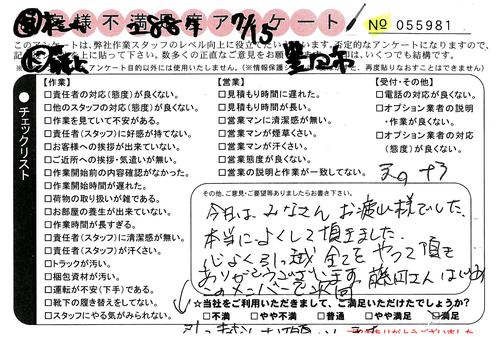 お客様不満足度アンケート
№ 055981
このアンケートは、弊社作業スタッフのレベル向上に役立て
否定的なアンケートになりますので、
【作業】
□責任者の対応(態度)が良くない。
□他のスタッフの対応(態度)が良くない。
□作業を見ていて不安がある。
□責任者(スタッフ)に好感が持てない。
□お客様への挨拶が出来ていない。
□ご近所への挨拶・気遣いが無い。
□作業開始前の内容確認がなかった。
□作業開始時間が遅れた。
□荷物の取り扱いが雑である。
□お部屋の養生が出来ていない。
□作業時間が長すぎる。
□責任者(スタッフ)に清潔感が無い。
□責任者(スタッフ)が汗くさい。
□トラックが汚い。
□梱包資材が汚い。
□運転が不安(下手)である。
□靴下の履き替えをしてない。
□スタッフにやる気がみられない。
【営業】
□見積もり時間に遅れた。
□見積もり時間が長い。
□営業マンに清潔感が無い。
□営業マンが煙草くさい。
□営業マンが汗くさい。
□営業態度が良くない。
□営業の説明と作業が一致してない。
【受付・その他】
□電話の対応が良くない。
□オプション業者の説明
・作業が良くない。
□オプション業者の対応
(態度)が良くない。
●チェックリスト
その他、ご意見・ご要望等ありましたらお書き下さい。
今日は、みなさん お疲れ様でした。
本当によくして頂きました。
心よく引っ越し全てをやって頂き
ありがとうございます
このメンバーを
☆当社をご利用いただきまして、ご満足いただけたでしょうか?
□不満 □やや不満 □普通 □やや満足 □満足